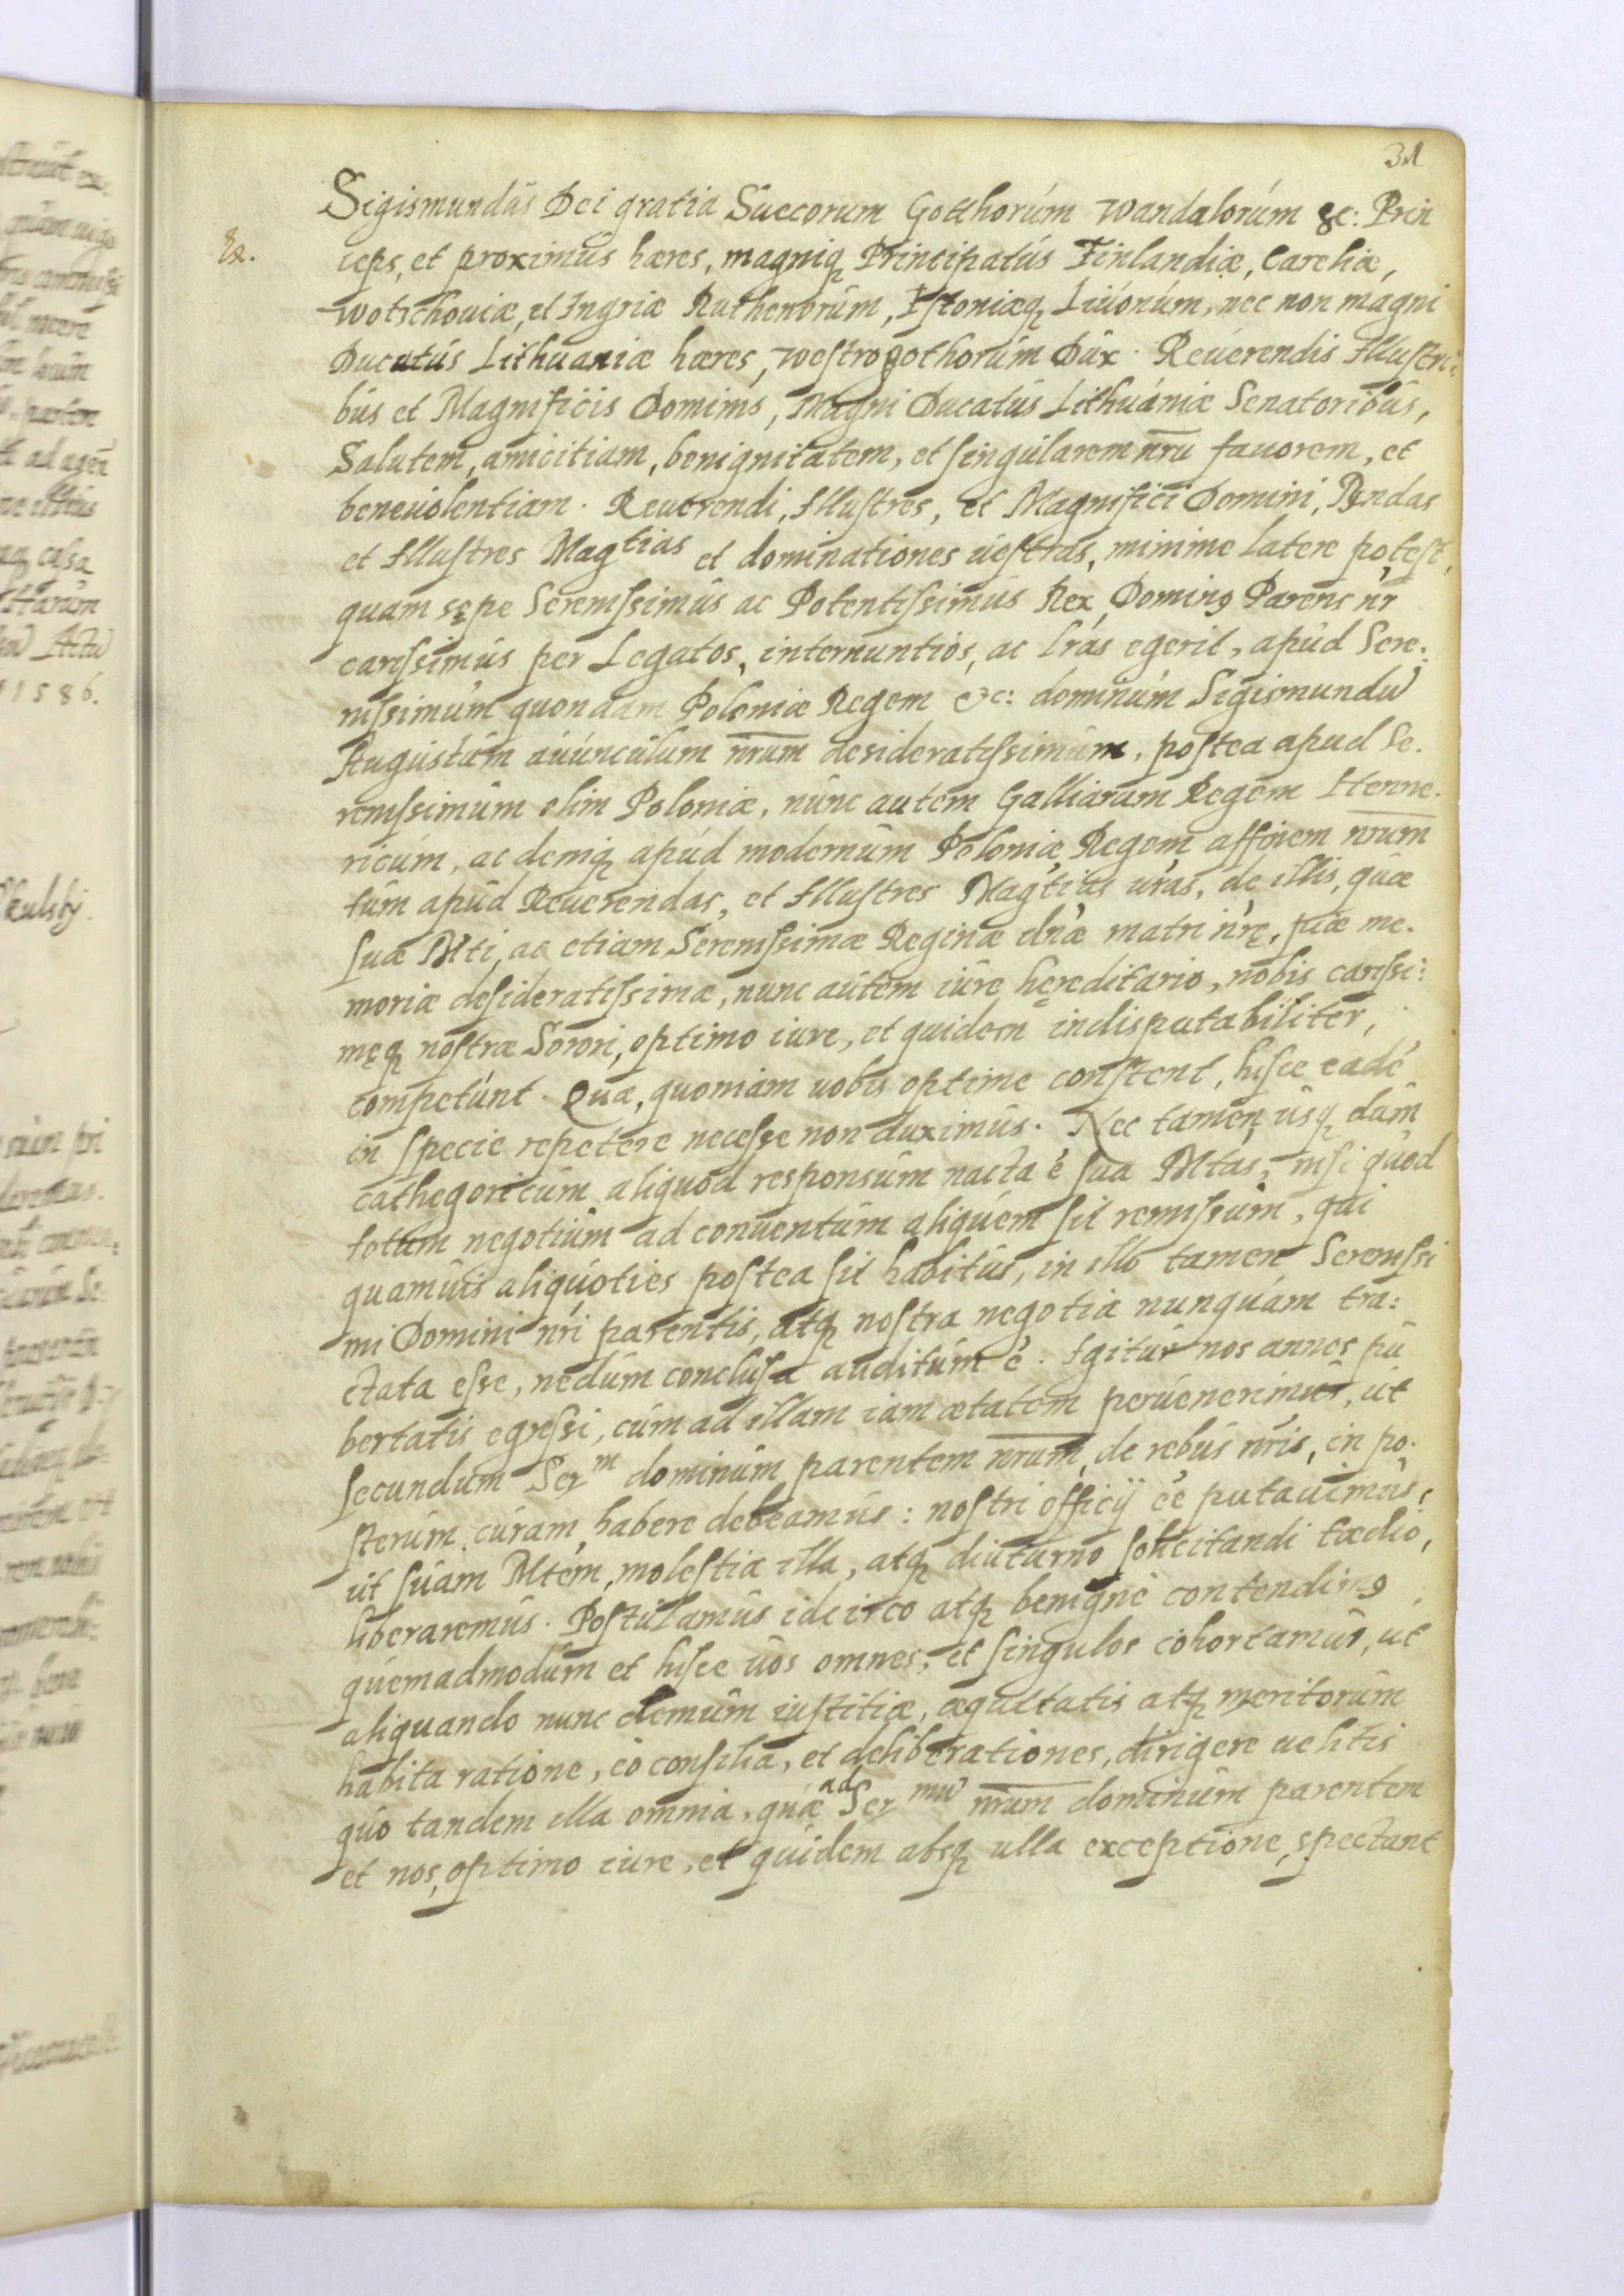 31
Sigismundus Dei gratia Suecorum Gotthorum Wandalorum &c: Prin
Ex.
ceps, et proximus hæres, magniq Principatus Finlandiæ, Careliæ,
Wotschouiæ, et Ingriæ Ruthenorum, Estoniæq Liuonum, nec non magni
Ducatus Lithuaniæ hæres, Westrogothorum Dux. Reuerendis Illustri:
bus et Magnificis Dominis, Magni Ducatus Lithuaniæ Senatoribus,
Salutem, amicitiam, benignitatem, et singularem nrũ fauorem, et
beneuolentiam. Reuerendi, Illustres, et Magnifici Domini, Rndas
et Illustres Magtias et dominationes uestras, minime latere potest,
quam sępe Serenissimus ac Potentissimus Rex Dominꝰ Parens nr
carissimus per Legatos, internuntios, ac lrãs egerit, apud Sere:
nissimum quondam Poloniæ Regem &c: dominum Sigismundũ
Augustum auunculum nrum desideratissimum, postea apud Se.
renissimum olim Poloniæ, nunc autem Galliarum Regem Henne.
ricum, ac deniq apud modernum Poloniæ Regem affinem nrum
tum apud Reuerendas, et Illustres Magtias uras, de illis, quæ
suæ Mti, ac etiam Serenissimæ Reginæ dnæ matri nrę, piæ me.
moriæ desideratissimæ, nunc autem iure hęreditario, nobis carissi:
męq nostræ Sorori, optimo iure, et quidem indisputabiliter,
competunt. Quæ, quoniam uobis optime constent, hisce eadẽ
in specie repetere necesse non duximus. Nec tamen usq dum
cathegoricum aliquod responsum nacta ẽ sua Mtas, nisi quod
totum negotium ad conuentum aliquem sit remissum, qui
quamuis aliquoties postea sit habitus, in illo tamen Serenissi
mi Domini nri parentis, atq nostra negotia nunquam tra:
ctata esse, nedum conclusa auditum ẽ. Igitur nos annos pu
bertatis egressi, cum ad illam iam ætatem peruenerimus, ut
secundum Serm dominum parentem nrum, de rebus nris, in po.
sterum curam habere debeamus: nostri officij ẽe putauimus,
ut suam Mtem, molestia illa, atq diuturno solicitandi tædio,
liberaremus. Postulamus idcirco atq benigne contendimꝰ
quemadmodum et hisce uos omnes, et singulos cohortamur, ut
aliquando nunc demum iustitiæ, æquitatis atq meritorum
habita ratione, eo consilia, et deliberationes, dirigere uelitis
quo tandem illa omnia, quæ ad Sermũ nrum dominum parentem
et nos, optimo iure, et quidem absq ulla exceptione, spectant